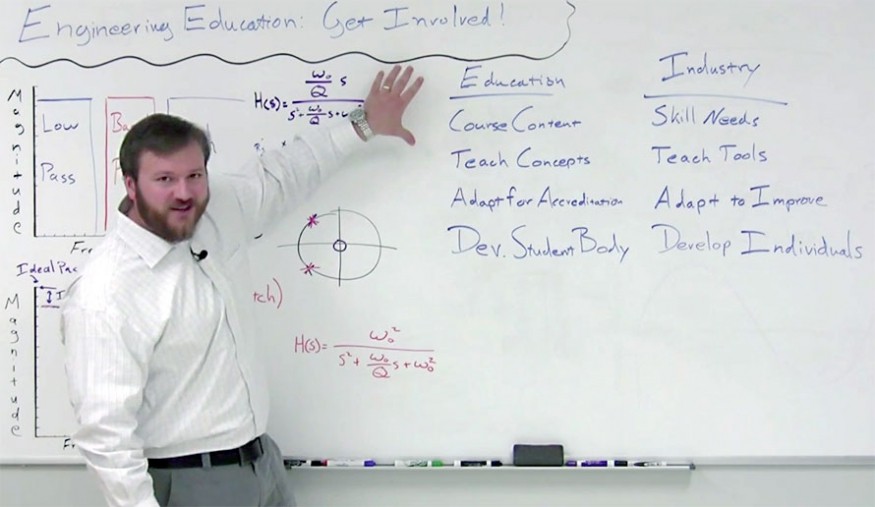 Engineering Education: Get Involved!
Magnitude
Low
Pass
Ba
H(s) = ω₀/Q s
s² + ω₀/Q s + ω
Ideal
Magnitude
tch)
H(s) = ω₀²
s² + ω₀/Q s + ω₀²
Education
Course Content
Teach Concepts
Adapt for Accreditation
Dev. Student Body
Industry
Skill Needs
Teach Tools
Adapt to Improve
Develop Individuals